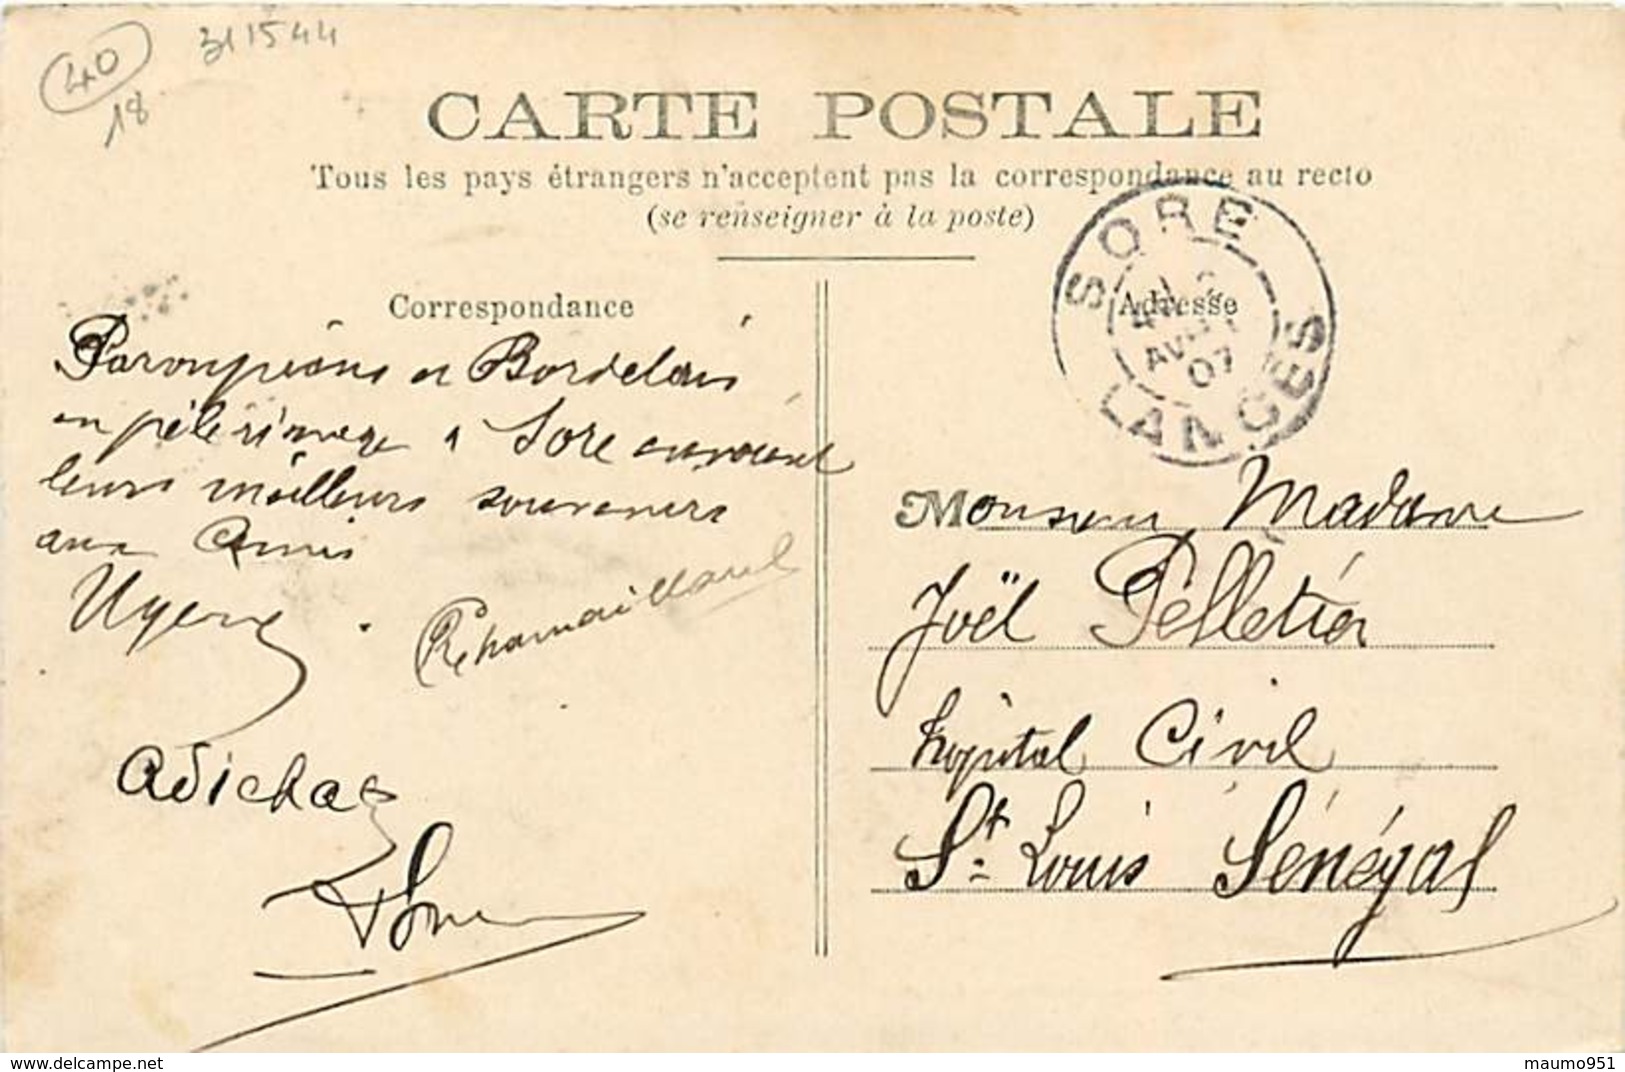 40
311544
18
CARTE POSTALE
Tous les pays étrangers n'acceptent pas la correspondance au recto
(se renseigner à la poste)
SORE
AVRIL
07
LANDES
Correspondance
Adresse
et Bordelais
en pélerimage a Sore envoient
leurs meilleurs souvenirs
aux Amis
Monsieur, Madame
Joël Pelletier
hopital Civil
St. Louis Sénégal
Adichas
www.delcampe.net
maumo951